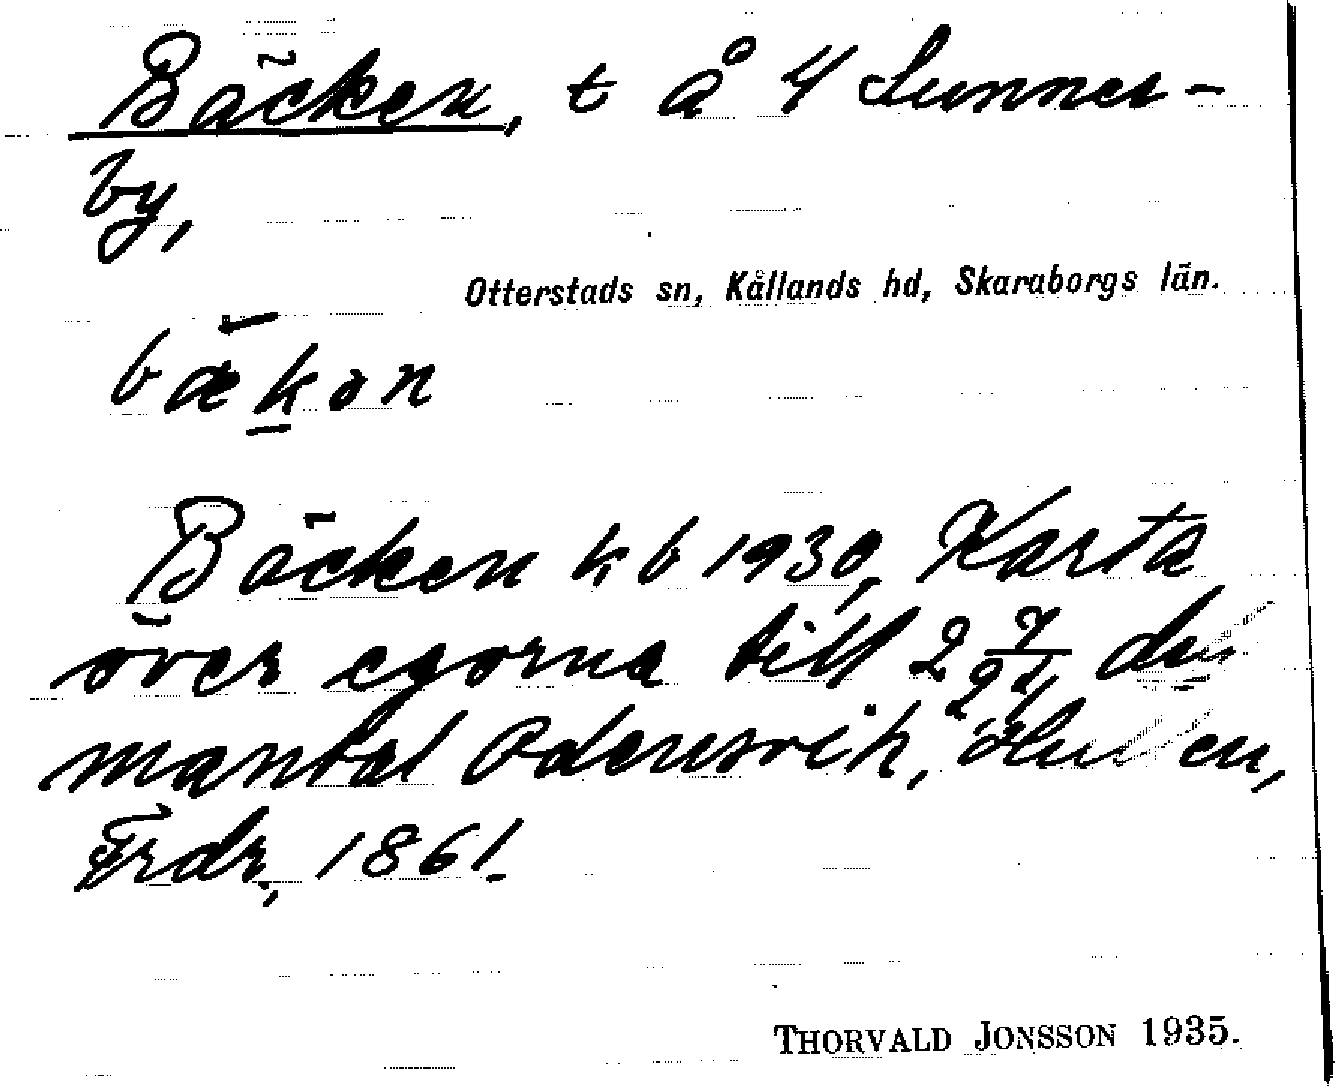 Bäcken, t å 4 Sunnes-
by,
Otterstads sn, Kållands hd, Skaraborgs län.
bækan
Bäcken kb 1930, Karta
över egorna till 2 7/24 dels
mantal Odensvik, en,
Frdr, 1861.
THORVALD JONSSON 1935.